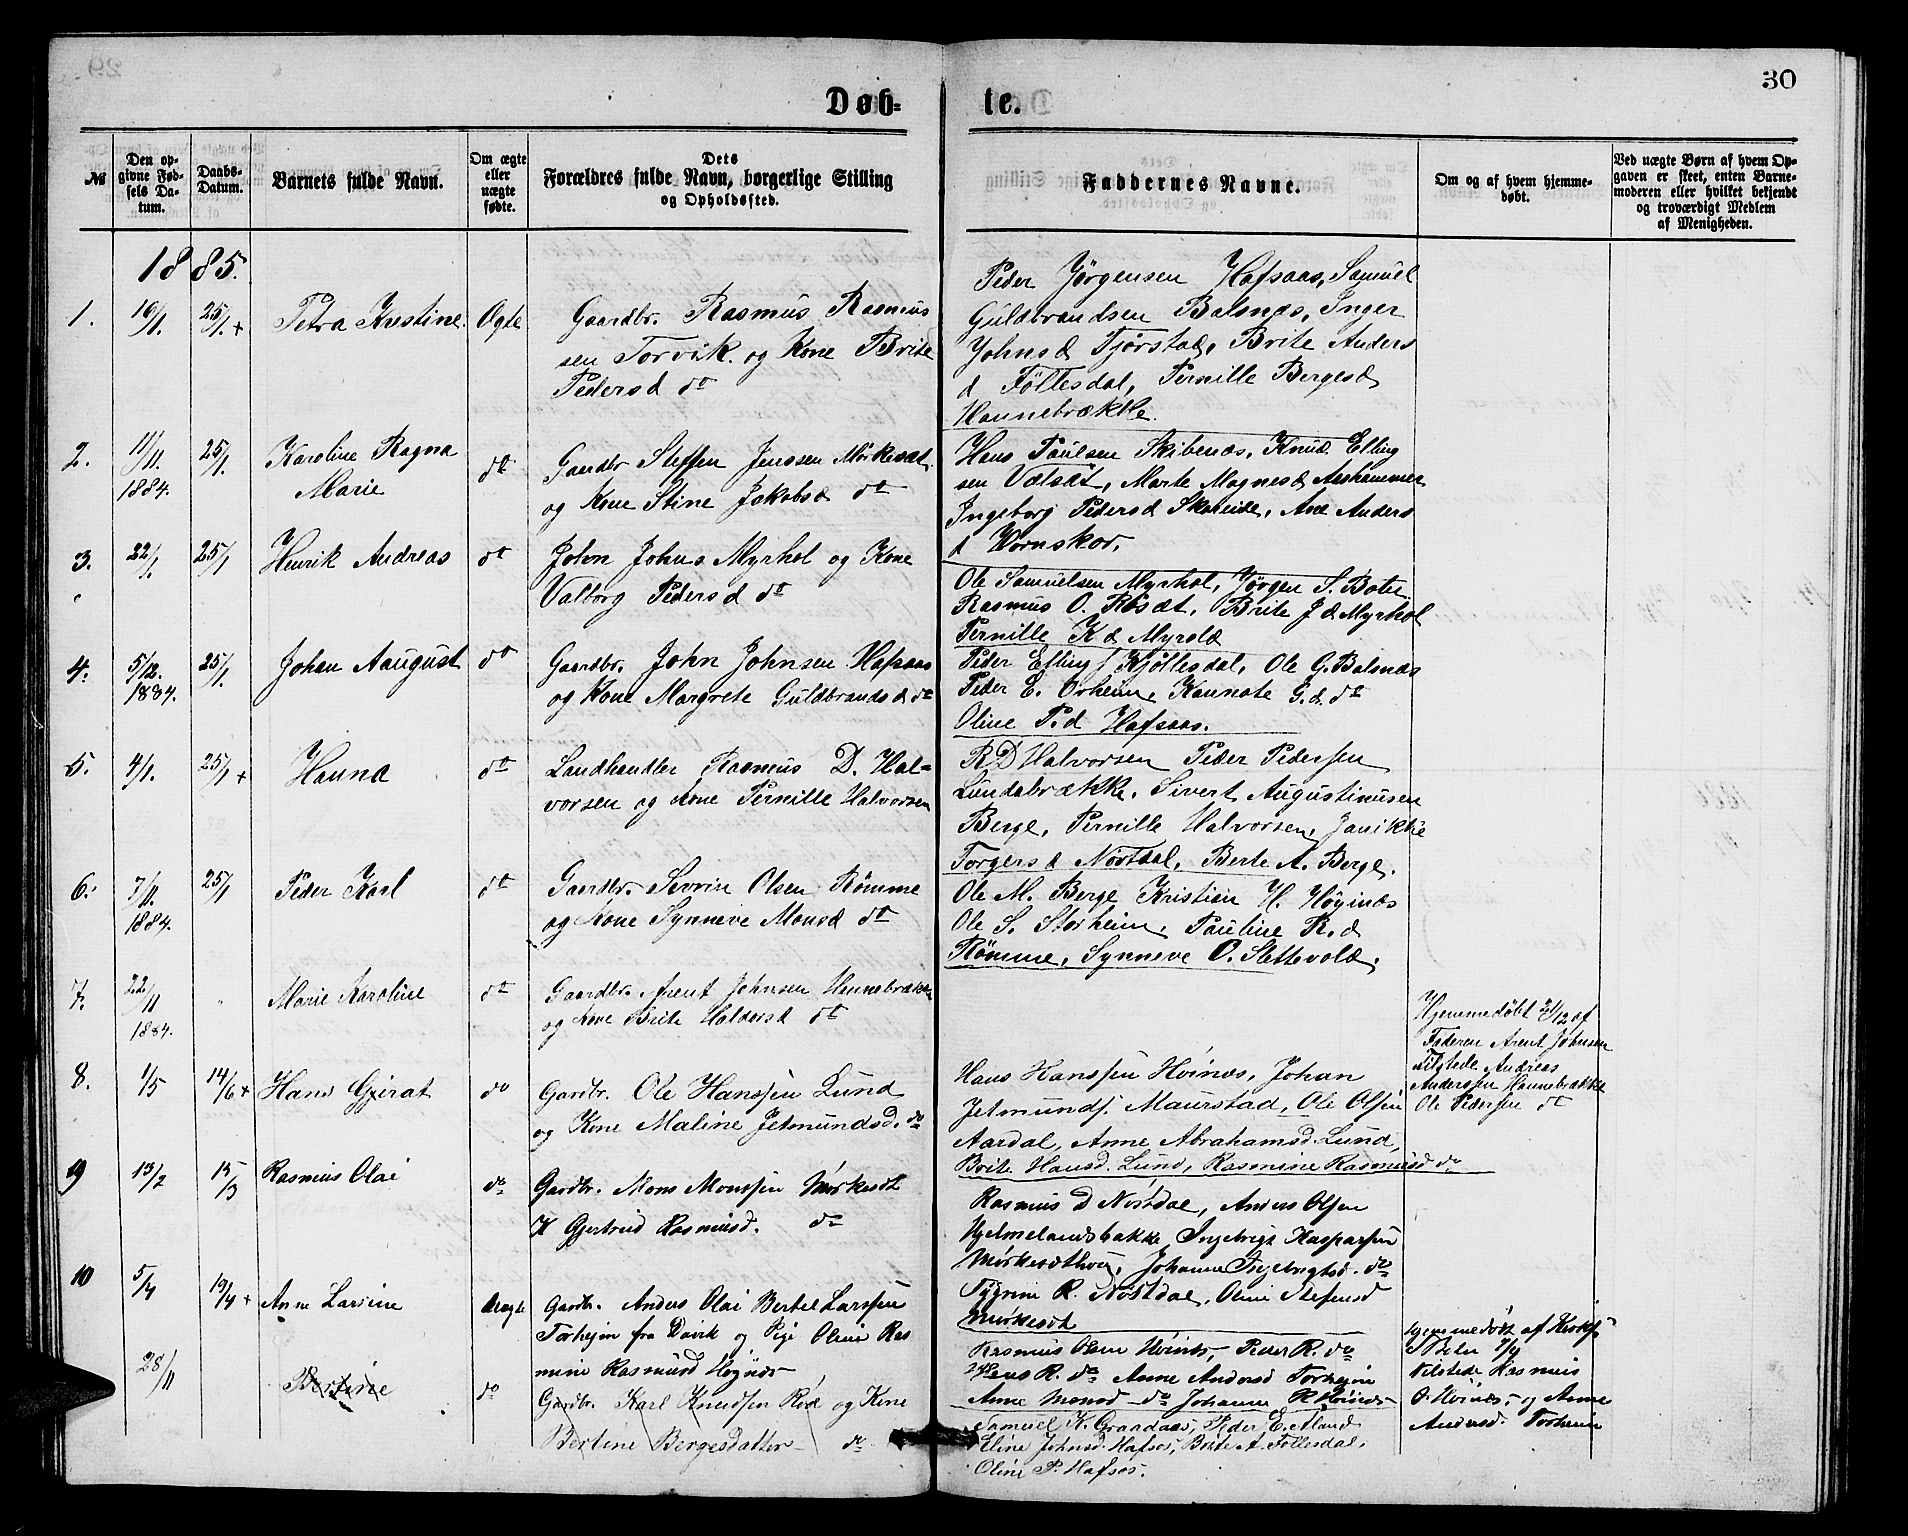 30
Døb-
te.
№
Den op-
givne Fød-
sels Da-
tum.
Daabs-
Datum.
Barnets fulde Navn.
Om ægte
eller
uægte
fødte.
Dets
Forældres fulde Navn, borgerlige Stilling
og Opholdssted.
Faddernes Navne.
Om og af hvem hjemme-
døbt.
Ved uægte Børn af hvem Op-
gaven er skeet, enten Barne-
moderen eller hvilket bekjendt
og troværdigt Medlem
af Menigheden.
1885.
1. 16/1. 25/1. + Petra Kristine. Ægte
Gaardbr. Rasmus Rasmus
sen Torvik. og Kone Brite
Pedersd do
Peder Jørgensen Hafsaas, Samuel
Guldbrandsen Balsnæs, Inger
Johnsd Fjørstad, Brite Anders
d Føllesdal, Pernille Bergesd
Hannebrække.
2. 11/11. 1884. 25/1. Karoline Ragna
Marie
do
Gaardbr Steffen Jenssen Mørkesæt
og Kone Stine Jakobsd do
Hans Paulsen Skibenæs, Knud Elling
sen Vætsæt, Marte Magnesd Aashammer
Ingeborg Pedersd Skoreide, Ane Anders
d Hornskor.
3. 22/1. 25/1 Henrik Andreas do
John Johns Myrhol og Kone
Valborg Pedersd do
Ole Samuelsen Myrhol, Jørgen S. Boten
Rasmus O. Røsæt, Brite J d Myrhol
Pernille K d Myrold
4. 5/12. 1884. 25/1. Johan Aaugust do
Gaardbr. John Johnsen Hafsaas
og Kone Margrete Guldbrandsd do
Peder Ellings Kjøllesdal, Ole G. Balsnæs
Peder E. Orheim, Kannate G. d. do
Oline P. d Hafsaas.
5. 4/1. 25/1 + Hanna do
Landhandler Rasmus D. Hal-
vorsen og Kone Pernille Halvorsen
R. D Halvorsen Peder Pedersen
Lundebrække, Sivert Augustinusen
Berge, Pernille Halvorsen, Janikke
Torgersd Nøstdal, Berte A. Berge.
6. 7/11. 1884. 25/1 Peder Karl do
Gaardbr. Severin Olsen Rømme
og Kone Synneve Monsd do
Ole M. Berge Kristian H. Høginæs
Ole S. Storheim, Pauline R. d
Rømme, Synneve O. Slettevold.
7. 22/11 1884. " Marie Karoline do
Gaardbr. Arent Johnsen Hannebrække
og Kone Brite Haldorsd do
Hjemmedøbt 21/12 af
Faderen Arent Johnsen
Tilstede Andreas
Anderssen Hannebrække
Ole Pedersen do
8. 1/5 14/6 + Hans Gjerat do
Gardbr. Ole Hanssen Lund
og Kone Maline Jetmundsd. do
Hans Hanssen Høinæs, Johan
Jetmunds. Maurstad, Ole Olsen
Aardal, Anne Abrahamsd. Lund,
Brite Hansd. Lund, Rasmine Rasmusd do
9 13/2 15/3 Rasmus Olai do
Gardbr. Mons Monssen Mørkesæt
K Gjertrud Rasmusd. do
Rasmus D Nøstdal, Anders Olsen
Hjelmelandsbakke Ingebrigt Kasparsen
Mørkesæthou, Johanne Ingebrigtsd. do
R. Nøstdal, Oline Stefensd
Mørkesæt
10 5/4 19/4 + Anne Larsine Uægte
Gardbr. Anders Olai Bertel Larssen
Torhejm fra Davik og Pige Oline Ras
mine Rasmusd Høynæs
Rasmus Høinæs, Peder R. do
R. do Anne Andersd Torhejm
Anne Monsd do Johanne R Høinæs
Hjemmedøbt af Kirks.
7/4
Tilstede Rasmus
O. Høinæs, og Anne
Andersd. Torheim
28/11 Bertine do
Gardbr. Karl Knudsen Rød og Kone
Bertine Bergesdatter do
Samuel K. Graadaas, Peder E. Aland
Eline Johnsd. Hafsøs, Brite A. Føllesdal,
Oline P. Hafsøs.